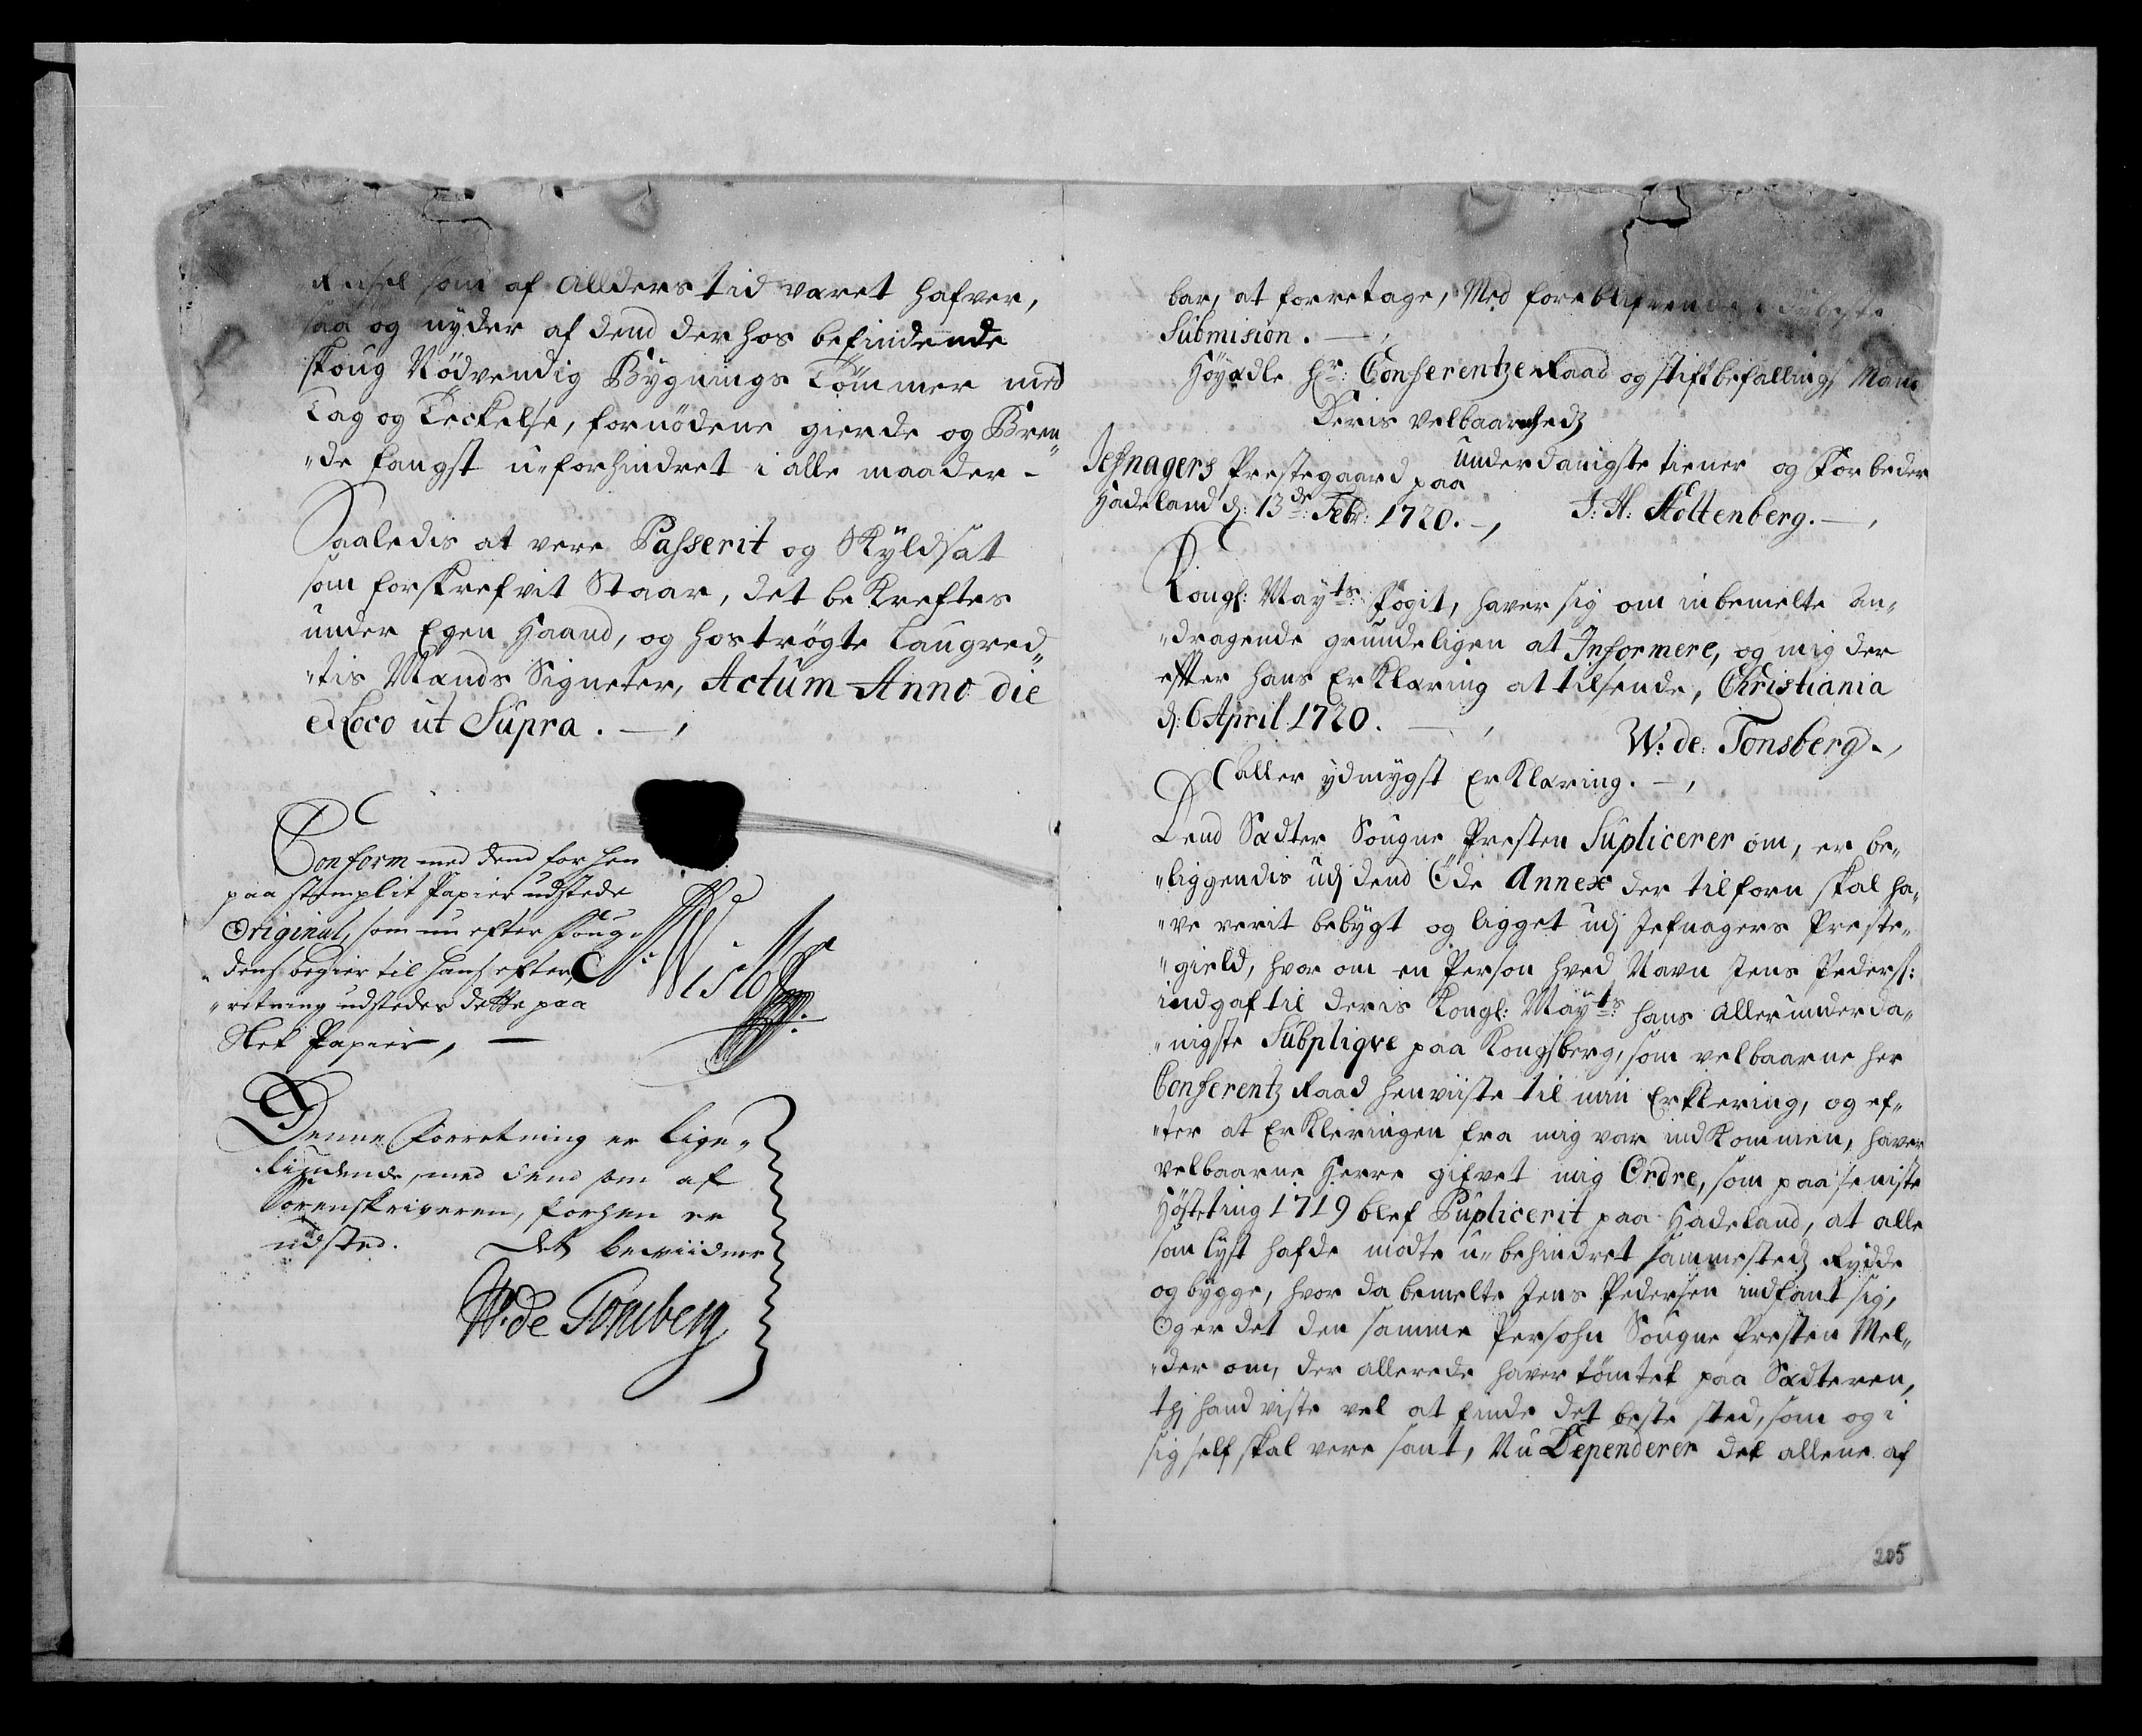 som af Allders tid været hafver,
saa og nyder af dend derhos befindende
skoug Nödvendig Bygnings Tömmer med
Tag og Teckelse, fornödene gierde og Bren„
„de fangst u-forhindret i alle maader -
Saaledis at vere Passerit og Skyldsat
som forskrefvit Staar, det beKreftes
under Egen Haand, og hoströgte Laugred„
„tis Mænds Signeter, Actum Anno die
et Loco ut Supra. —,
Conform med dend forhen
paa stemplit Papier udstede
Original, som nu efter Foug„
„dens begier til hans efter„
„retning udstedes dette paa
Slet Papier, —
Denne Forretning er lige„
lÿdende, med dend som af
Sorenskriveren, forhen er
udsted. Det bevidner
W. de Tonsberg
bar, at forretage, Med foreblifvende
Submision. —,
Höyædle Hr: Conferentze Raad og Stiftbefallings Mand
Deris velbaarnheds
underdanigste tiener og Forbeder
Jefnagers Prestegaard paa
Hadeland d: 13de: Febr: 1720. -, J: H: Stoltenberg. —,
Kongl: Mayts: Fogit, haver sig om inbemelte An„
„dragende grundeligen at Informere, og mig der
efter hans ErKlæring at tilsende, Christiania
d: 6 April 1720. —, W: de: Tonsberg.,
Aller ÿdmygst ErKlæring. —,
Dend Sædter Sougne Presten Suplicerer om, er be„
„liggendis udj dend Öde Annex der tilforn skal ha„
„ve verit bebygt og ligget udj Jefnagers Preste„
„gield, hvor om en Person hved Navn Jens Peders:
indgaf til deris Kongl: Mayts: hans Allerunderda„
„nigste Subpliqve paa Kongsberg, som velbaarne her
Conferentz Raad henviiste til min Erklering, og ef„
„ter at ErKleringen fra mig var indKommen, haver
velbaarne Herre gifvet mig Ordre, som paa seniste
Hösteting 1719 blef Puplicerit paa Hadeland, at alle
som lyst hafde motte u-behindret sammesteds Rydde
og bygge, hvor da bemelte Jens Pedersen indfant sig,
Og er det den samme Persohn Sougne Presten Mel„
„der om, der allerede haver tömtet paa Sædteren,
thj hand viste vel at finde det beste sted, som og i
sig self skal vere sant, Nu Dependerer det allene af
205